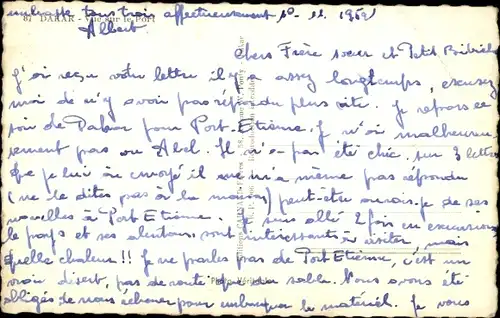 embrasse tous trois affectueusement 10-11-1959
Albert
81 DAKAR - Vue sur le Port
Chers Frère sœur et Petit
J'ai reçu votre lettre il y a assez longtemps, excusez
moi de n'y avoir pas répondu plus vite. Je repars ce
soir de Dakar pour Port-Etienne. Je n'ai malheureu
sement pas vu Abel. Il n'a pas été chic, sur 3 lettres
que je lui ai envoyé il ne m'a même pas répondu
(ne le dites pas à la maison) peut-être aurais-je de ses
nouvelles à Port Etienne. Je suis allé 2 fois en excursion
le pays et ses alentours sont intéressants à visiter, mais
quelle chaleur!! Je ne parles pas de Port Etienne, c'est un
vrai désert, pas de route que du sable. Nous avons été
obligés de nous échouer pour embarquer le matériel. Je vous